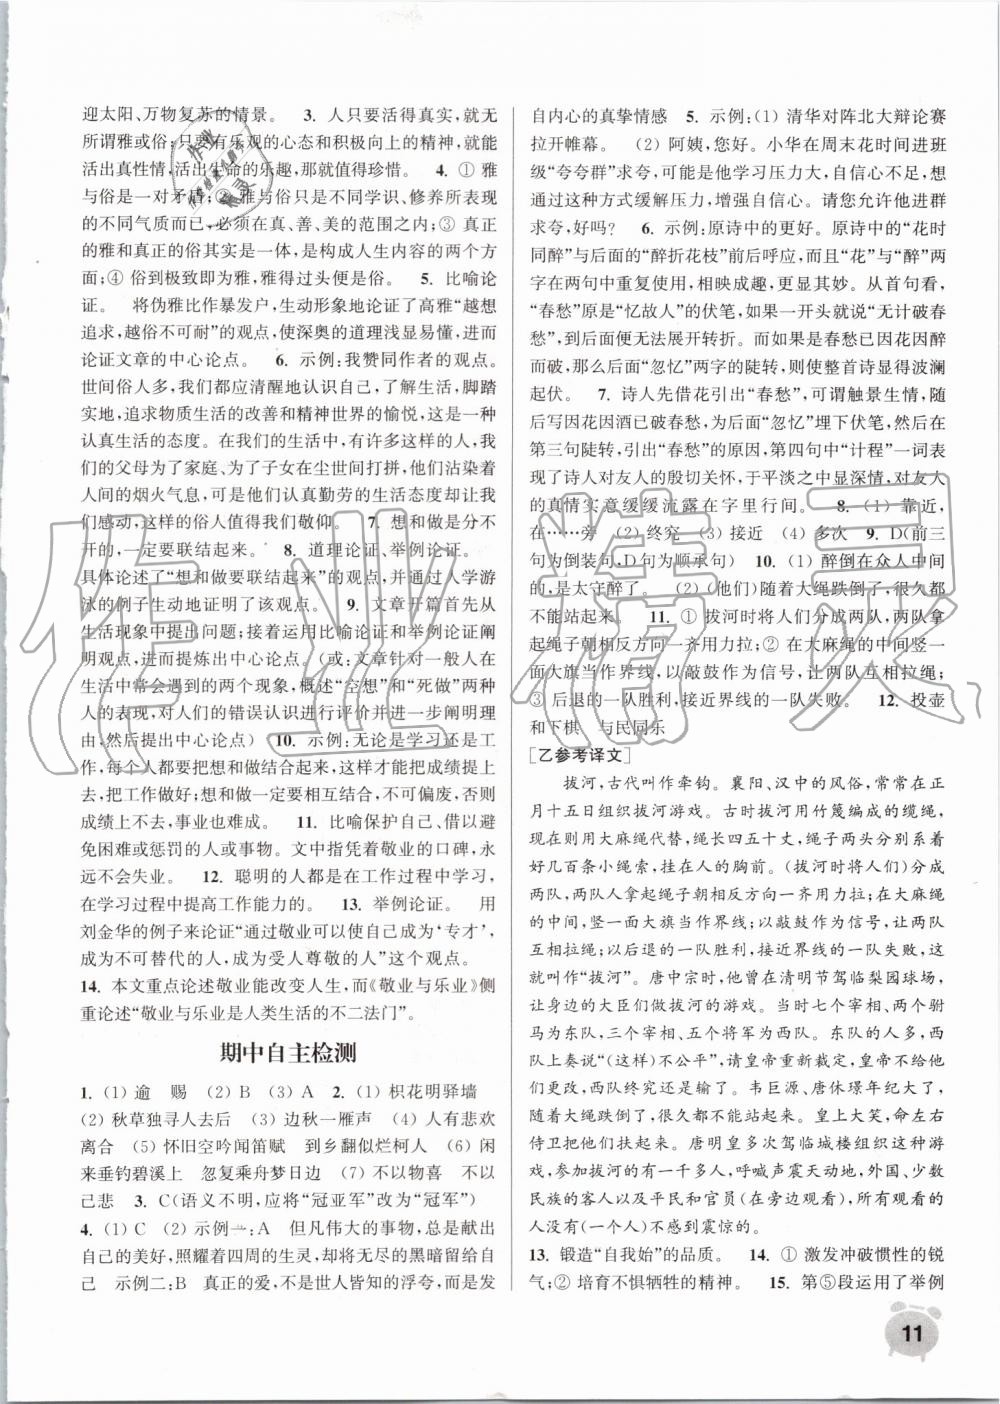 迎太阳、万物复苏的情景。　3. 人只要活得真实,就无
所谓雅或俗;只要有乐观的心态和积极向上的精神,就能
活出真性情,活出生命的乐趣,那就值得珍惜。　4. ① 雅
与俗是一对矛盾;② 雅与俗只是不同学识、修养所形成
的不同气质而已,必须在真、善、美的范围之内;③ 真正
的雅和真正的俗其实是一体,是构成人生内容的两个方
面;④ 俗到极致即为雅,雅得过头便是俗。　5. 比喻论
证。　将伪雅比作暴发户,生动形象地论证了高雅“越想
追求,越俗不可耐”的观点,使深奥的道理浅显易懂,进而
论证文章的中心论点。　6. 示例:我赞同作者的观点。
世间俗人多,我们都应清醒地认识自己,了解生活,脚踏
实地,追求物质生活的改善和精神世界的愉悦,这是一种
认真生活的态度。在我们的生活中,有许多这样的人,我
们的父母为了家庭、为了子女在尘世间打拼,他们沾染着
人间的烟火气息,可是他们认真勤劳的生活态度却让我
们感动,这样的俗人值得我们敬仰。　7. 想和做是分不
开的,一定要联结起来。　8. 道理论证、举例论证。
具体论述了“想和做要联结起来”的道理,并通过人学游
泳的例子生动地证明了该观点。　9. 文章开篇首先从
生活现象中提出问题;接着运用比喻论证和举例论证阐
明观点,进而提炼出中心论点。(或:文章针对一般人在
生活中常会遇到的两个现象,概述“空想”和“死做”两种
人的表现,对人们的错误认识进行评价并进一步阐明理
由,然后提出中心论点)　10. 示例:无论是学习还是工
作,每个人都要把想和做联结起来,这样才能把成绩提上
来,把工作做好;想和做必须相互结合,不可偏废,否则
成绩上不去,事业也难成。　11. 比喻保护自己、借以避
免困难或惩罚的人或事物。文中指凭着敬业的口碑,永
远不会失业。　12. 聪明的人都是在工作过程中学习,
在学习过程中提高工作能力的。　13. 举例论证。　用
刘金华的例子来论证“通过敬业可以使自己成为‘专才’,
成为不可替代的人,成为受人尊敬的人”这个观点。
14. 本文重点论述敬业能改变人生,而《敬业与乐业》侧
重论述“敬业与乐业是人类生活的不二法门”。
期中自主检测
1. (1) 逾　赐　(2) B　(3) A　2. (1) 枳花明驿墙
(2) 秋草独寻人去后　(3) 边秋一雁声　(4) 人有悲欢
离合　(5) 怀旧空吟闻笛赋　到乡翻似烂柯人　(6) 闲
来垂钓碧溪上　忽复乘舟梦日边　(7) 不以物喜　不以
己悲　3. C(语义不明,应将“冠亚军”改为“冠军”)
4. (1) C　(2) 示例一:A　但凡伟大的事物,总是献出
自己的美好,照耀着四周的生灵,却将无光的黑暗留给自
己　示例二:B　真正的爱,不是世人皆知的浮夸,而是发
自内心的真挚情感　5. 示例:(1) 清华对阵北大辩论赛
拉开帷幕。　(2) 阿姨,您好。小华在周末花时间进班
级“夸夸群”求夸,可能是他学习压力大,自信心不足,想
通过这种方式缓解压力,增强自信心。请您允许他进群
求夸,好吗?　6. 示例:原诗中的更好。原诗中的“花时
同醉”与后面的“醉折花枝”前后呼应,而且“花”与“醉”两
字在两句中重复使用,相映成趣,更显其妙。从首句看,
“春愁”原是“忆故人”的伏笔,如果一开头就说“无计破春
愁”,后面便无法展开转折。而如果是春愁已因花因醉而
破,那么后面“忽忆”两字的陡转,才能使整首诗显得波澜
起伏。　7. 诗人先借花引出“春愁”,可谓触景生情,随
后写因花因酒已破春愁,为后面“忽忆”埋下伏笔,然后在
第三句陡转,引出“春愁”的原因,第四句中“计程”一词表
现了诗人对友人的殷切关怀,于平淡之中显深情,对友人
的真情实意缓缓流露在字里行间。　8. (1) 靠近,
在……旁　(2) 终究　(3) 接近　(4) 多次　9. D(前三
句为倒装句,D句为顺承句)　10. (1) 醉倒在众人中间
的,是太守醉了。　(2) (他们)随着大绳跌倒了,很久都
不能站起来。　11. ① 拔河时将人们分成两队,两队拿
起绳子朝相反方向一齐用力拉;② 在大麻绳的中间竖一
面大旗当作界线,以敲鼓作为信号,让两队相互拉绳;
③ 后退的一队胜利,接近界线的一队失败。　12. 投壶
和下棋　与民同乐
[乙参考译文]
拔河,古代叫作牵钩。襄阳、汉中的风俗,常常在正
月十五日组织拔河游戏。古时拔河用竹篾编成的缆绳,
现在则用大麻绳代替,绳长四五十丈,绳子两头分别系着
好几百条小绳索,挂在人的胸前。(拔河时将人们)分成
两队,两队人拿起绳子朝相反方向一齐用力拉。在大麻绳
的中间,竖一面大旗当作界线;以敲鼓作为信号,让两队
相互拉绳;以后退的一队胜利,接近界线的一队失败,这
就叫作“拔河”。唐中宗时,他曾在清明节驾临梨园球场,
让身边的大臣们做拔河的游戏。当时七个宰相、两个驸
马为东队,三个宰相、五个将军为西队。东队的人多,西
队上奏说“(这样)不公平”,请皇帝重新裁定,皇帝不给他
们更改,西队终究还是输了。韦巨源、唐休璟年纪大了,
随着大绳跌倒了,很久都不能站起来。皇上大笑,命左右
侍卫把他们扶起来。唐明皇多次驾临城楼组织这种游
戏,参加拔河的有一千多人,呼喊声震天动地,外国、少数
民族的客人以及民众和官员(在旁边观看),所有观看的
人没有(一个人)不感到震惊的。
13. 锻造“自我始”的品质。　14. ① 激发冲破惯性的锐
气;② 培育不惧牺牲的精神。　15. 第⑤段运用了举例
11
作业精灵